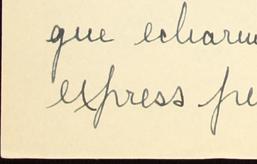 que echaru
express pe